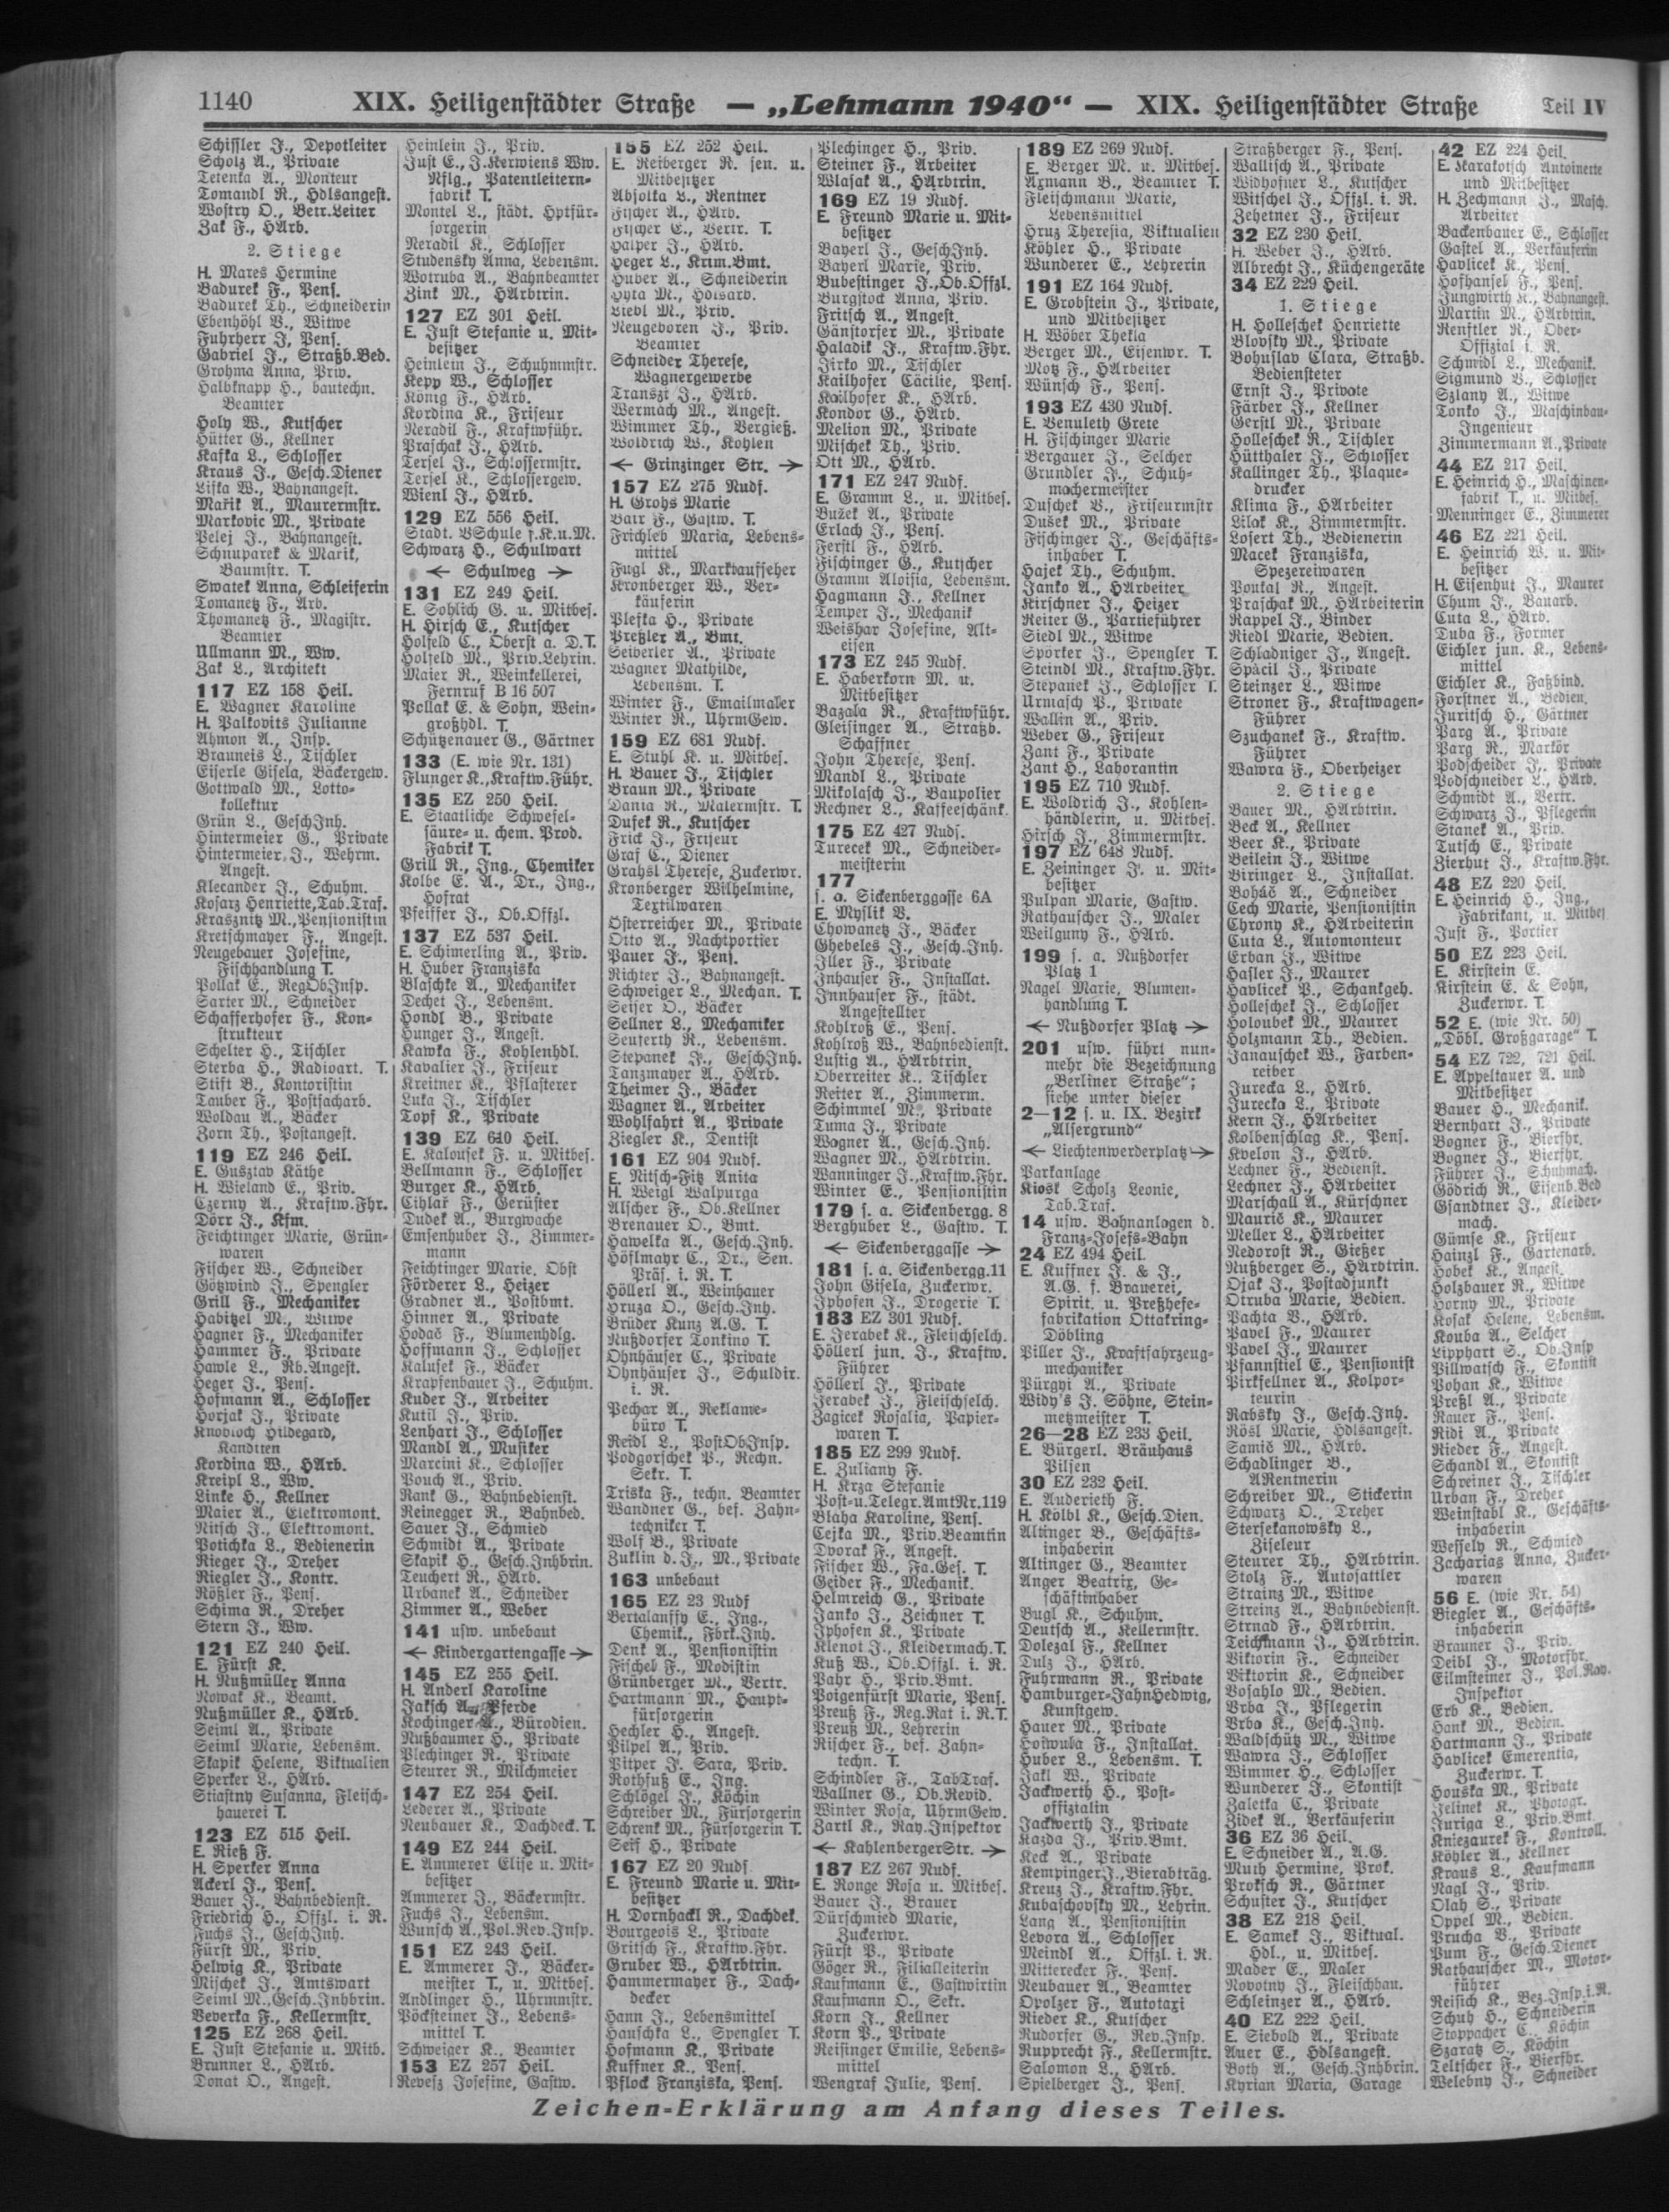 1140 XIX. Heiligenstädter Straße — „Lehmann 1940“ — XIX. Heiligenstädter Straße Teil IV
Schiffler J., Depotleiter
Scholz A., Private
Tetenka A., Monteur
Tomandl R., Hdlsangest.
Wostry O., Betr.Leiter
Zak F., HArb.
2. Stiege
H. Mares Hermine
Badurek F., Pens.
Badurek Th., Schneiderin
Ebenhöhl V., Witwe
Fuhrherr J, Pens.
Gabriel J., Straßb.Bed.
Grohma Anna, Priv.
Halbknapp H., bautechn.
Beamter
Holy W., Kutscher
Hütter G., Kellner
Kafka L., Schlosser
Kraus J., Gesch.Diener
Liska W., Bahnangest.
Mařik A., Maurermstr.
Markovic M., Private
Pelej J., Bahnangest.
Schnuparek & Marik,
Baumstr. T.
Swatek Anna, Schleiferin
Tomanetz F., Arb.
Thomanetz F., Magistr.
Beamter
Ullmann M., Ww.
Zak L., Architekt
117 EZ 158 Heil.
E. Wagner Karoline
H. Palkovits Julianne
Ahmon A., Insp.
Brauneis L., Tischler
Eiserle Gisela, Bäckergew.
Gottwald M., Lotto-
kollektur
Grün L., GeschInh.
Hintermeier G., Private
Hintermeier J., Wehrm.
Angest.
Klecander J., Schuhm.
Kosarz Henriette, Tab.Traf.
Krasznitz M., Pensionistin
Kretschmayer F., Angest.
Neugebauer Josefine,
Fischhandlung T.
Pollak E., RegObInsp.
Sarter M., Schneider
Schafferhofer F., Kon-
strukteur
Schelter H., Tischler
Sterba H., Radioart. T.
Stift B., Kontoristin
Tauber F., Postfacharb.
Woldau A., Bäcker
Zorn Th., Postangest.
119 EZ 246 Heil.
E. Gusztav Käthe
H. Wieland E., Priv.
Czerny A., Kraftw.Fhr.
Dörr J., Kfm.
Feichtinger Marie, Grün-
waren
Fischer W., Schneider
Götzwind J., Spengler
Grill F., Mechaniker
Habitzel M., Witwe
Hagner F., Mechaniker
Hammer F., Private
Hawle L., Rb.Angest.
Heger J., Pens.
Hofmann A., Schlosser
Horjak J., Private
Knobloch Hildegard,
Kanditen
Kordina W., HArb.
Kreipl L., Ww.
Linke H., Kellner
Maier A., Elektromont.
Nitsch J., Elektromont.
Potichka L., Bedienerin
Rieger J., Dreher
Riegler J., Kontr.
Rößler F., Pens.
Schima R., Dreher
Stern J., Ww.
121 EZ 240 Heil.
E. Fürst K.
H. Nußmüller Anna
Nowak K., Beamt.
Nußmüller K., HArb.
Seiml A., Private
Seiml Marie, Lebensm.
Skapik Helene, Viktualien
Sperker L., HArb.
Stiastny Susanna, Fleisch-
hauerei T.
123 EZ 515 Heil.
E. Rieß F.
H. Sperker Anna
Ackerl J., Pens.
Bauer J., Bahnbedienst.
Friedrich H., Offzl. i. R.
Fuchs J., GeschInh.
Fürst M., Priv.
Helwig K., Private
Mischek J., Amtswart
Seiml M., Gesch.Inhbrin.
Veverka F., Kellermstr.
125 EZ 268 Heil.
E. Just Stefanie u. Mitb.
Brunner L., HArb.
Donat O., Angest.
Heinlein J., Priv.
Just E., J.Kerwiens Ww.
Nflg., Patentleitern-
fabrik T.
Montel L., städt. Hptfür-
sorgerin
Neradil K., Schlosser
Studensky Anna, Lebensm.
Wotruba A., Bahnbeamter
Zink M., HArbtrin.
127 EZ 301 Heil.
E. Just Stefanie u. Mit-
besitzer
Heinlein J., Schuhmmstr.
Kepp W., Schlosser
König F., HArb.
Kordina K., Friseur
Neradil F., Kraftwführ.
Praschak J., HArb.
Tersel J., Schlossermstr.
Tersel K., Schlossergew.
Wienl J., HArb.
129 EZ 556 Heil.
Städt. VSchule f.K.u.M.
Schwarz H., Schulwart
← Schulweg →
131 EZ 249 Heil.
E. Sohlich G. u. Mitbes.
H. Hirsch E., Kutscher
Holfeld C., Oberst a. D.T.
Holfeld M., Priv.Lehrin.
Maier R., Weinkellerei,
Fernruf B 16 507
Pollak E. & Sohn, Wein-
großhdl. T.
Schützenauer G., Gärtner
133 (E. wie Nr. 131)
Flunger K., Kraftw.Führ.
135 EZ 250 Heil.
E. Staatliche Schwefel-
säure- u. chem. Prod.
Fabrik T.
Grill R., Ing., Chemiker
Kolbe E. A., Dr., Ing.,
Hofrat
Pfeiffer J., Ob.Offzl.
137 EZ 537 Heil.
E. Schimerling A., Priv.
H. Huber Franziska
Blaschke A., Mechaniker
Dechet J., Lebensm.
Hondl B., Private
Hunger J., Angest.
Kawka F., Kohlenhdl.
Kavalier J., Friseur
Kreitner K., Pflasterer
Luka J., Tischler
Topf K., Private
139 EZ 640 Heil.
E. Kalousek F. u. Mitbes.
Bellmann F., Schlosser
Burger K., HArb.
Cihlař F., Gerüster
Dudek A., Burgwache
Emsenhuber J., Zimmer-
mann
Feichtinger Marie. Obst
Förderer L., Heizer
Gradner A., Postbmt.
Hinner A., Private
Hodač F., Blumenhdlg.
Hoffmann J., Schlosser
Kalusek F., Bäcker
Krapfenbauer J., Schuhm.
Kuder J., Arbeiter
Kutil J., Priv.
Lenhart J., Schlosser
Mandl A., Musiker
Marcini K., Schlosser
Pouch A., Priv.
Rank G., Bahnbedienst.
Reinegger R., Bahnbed.
Sauer J., Schmied
Schmidt A., Private
Skapik H., Gesch.Inhbrin.
Teuchert R., HArb.
Urbanek A., Schneider
Zimmer A., Weber
141 usw. unbebaut
← Kindergartengasse →
145 EZ 255 Heil.
H. Anderl Karoline
Jaksch Pferde
Kochinger A., Bürodien.
Nußbaumer H., Private
Plechinger R., Private
Steurer R., Milchmeier
147 EZ 254 Heil.
Lederer A., Private
Neubauer K., Dachdeck. T.
149 EZ 244 Heil.
E. Ammerer Elise u. Mit-
besitzer
Ammerer J., Bäckermstr.
Fuchs J., Lebensm.
Wunsch A., Pol.Rev.Insp.
151 EZ 243 Heil.
E. Ammerer J., Bäcker-
meister T., u. Mitbes.
Andlinger H., Uhrmmstr.
Pöcksteiner J., Lebens-
mittel T.
Schweiger K., Beamter
153 EZ 257 Heil.
Revesz Josefine, Gastw.
155 EZ 252 Heil.
E. Reiberger R. sen. u.
Mitbesitzer
Absolka L., Rentner
Fischer A., HArb.
Fischer E., Vertr. T.
Halper J., HArb.
Heger L., Krim.Bmt.
Huber A., Schneiderin
Hyta M., Hdlsarb.
Liebl M., Priv.
Neugeboren J., Priv.
Beamter
Schneider Therese,
Wagnergewerbe
Transzt J., HArb.
Wermach M., Angest.
Wimmer Th., Vergieß.
Woldrich W., Kohlen
← Grinzinger Str. →
157 EZ 275 Nudf.
H. Grohs Marie
Bair F., Gastw. T.
Frichleb Maria, Lebens-
mittel
Fugl K., Marktaufseher
Kronberger W., Ver-
käuferin
Plefka H., Private
Preßler A., Bmt.
Seiberler A., Private
Wagner Mathilde,
Lebensm. T.
Winter F., Emailmaler
Winter R., UhrmGew.
159 EZ 681 Nudf.
E. Stuhl K. u. Mitbes.
H. Bauer J., Tischler
Braun M., Private
Dania R., Malermstr. T.
Dusek R., Kutscher
Frick J., Friseur
Graf C., Diener
Grahsl Therese, Zuckerwr.
Kronberger Wilhelmine,
Textilwaren
Österreicher M., Private
Otto A., Nachtportier
Pauer J., Pens.
Richter J., Bahnangest.
Schweiger L., Mechan. T.
Seiser O., Bäcker
Sellner L., Mechaniker
Seuferth R., Lebensm.
Stepanek J., GeschInh.
Tanzmayer A., HArb.
Theimer J., Bäcker
Wagner A., Arbeiter
Wohlfahrt A., Private
Ziegler K., Dentist
161 EZ 904 Nudf.
E. Nitsch-Fitz Anita
H. Weigl Walpurga
Alscher F., Ob.Kellner
Brenauer O., Bmt.
Hawelka A., Gesch.Inh.
Höflmayr C., Dr., Sen.
Präs. i. R. T.
Höllerl A., Weinhauer
Hruza O., Gesch.Inh.
Brüder Kunz A.G. T.
Nußdorfer Tonkino T.
Ohnhäuser C., Private
Ohnhäuser J., Schuldir.
i. R.
Pechar A., Reklame-
büro T.
Reidl L., PostObInsp.
Podgorschek P., Rechn.
Sekr. T.
Triska F., techn. Beamter
Wandner G., bef. Zahn-
techniker T.
Wolf B., Private
Zuklin d. J., M., Private
163 unbebaut
165 EZ 23 Nudf
Bertalanffy E., Ing.,
Chemik., Fbrk.Inh.
Denk A., Pensionistin
Fischel F., Modistin
Grünberger M., Vertr.
Hartmann M., Haupt-
fürsorgerin
Hechler H., Angest.
Pilpel A., Priv.
Pitper J. Sara, Priv.
Rothfuß E., Ing.
Schlögel J., Köchin
Schreiber M., Fürsorgerin
Schrenk M., Fürsorgerin T.
Seif H., Private
167 EZ 20 Nudf.
E. Freund Marie u. Mit-
besitzer
H. Dornhackl R., Dachdek.
Bourgeois L., Private
Gritsch F., Kraftw.Fhr.
Gruber W., HArbtrin.
Hammermayer F., Dach-
decker
Hann J., Lebensmittel
Hauschka L., Spengler T.
Hofmann K., Private
Kuffner K., Pens.
Pflock Franziska, Pens.
Plechinger H., Priv.
Steiner F., Arbeiter
Wlasak A., HArbtrin.
169 EZ 19 Nudf.
E. Freund Marie u. Mit-
besitzer
Bayerl J., GeschInh.
Bayerl Marie, Priv.
Bubestinger J., Ob.Offzl.
Burgstock Anna, Priv.
Fritsch A., Angest.
Gänstorfer M., Private
Haladik J., Kraftw.Fhr.
Jirko M., Tischler
Kailhofer Cäcilie, Pens.
Kailhofer K., HArb.
Kondor G., HArb.
Melion M., Private
Mischek Th., Priv.
Ott M., HArb.
171 EZ 247 Nudf.
E. Gramm L., u. Mitbes.
Bužek A., Private
Erlach J., Pens.
Ferstl F., HArb.
Fischinger G., Kutscher
Gramm Aloisia, Lebensm.
Hagmann J., Kellner
Temper J., Mechanik
Weishar Josefine, Alt-
eisen
173 EZ 245 Nudf.
E. Haberkorn M. u.
Mitbesitzer
Bazala R., Kraftwführ.
Gleisinger A., Straßb.
Schaffner
John Therese, Pens.
Mandl L., Private
Mikolasch J., Baupolier
Rechner L., Kaffeeschänk.
175 EZ 427 Nudf.
Turecek M., Schneider-
meisterin
177
s. a. Sickenberggasse 6A
E. Myslik V.
Chowanetz J., Bäcker
Ghebeles J., Gesch.Inh.
Iller F., Private
Inhauser F., Installat.
Innhauser F., städt.
Angestellter
Kohlroß E., Pens.
Kohlroß W., Bahnbedienst.
Lustig A., HArbtrin.
Oberreiter K., Tischler
Reiter A., Zimmerm.
Schimmel M., Private
Tuma J., Private
Wagner A., Gesch.Inh.
Wagner M., HArbtrin.
Wanninger J., Kraftw.Fhr.
Winter E., Pensionistin
179 s. a. Sickenbergg. 8
Berghuber L., Gastw. T.
← Sickenberggasse →
181 s. a. Sickenbergg. 11
John Gisela, Zuckerwr.
Iphofen J., Drogerie T.
183 EZ 301 Nudf.
E. Jerabek K., Fleischselch.
Höllerl jun. J., Kraftw.
Führer
Höllerl J., Private
Jeradek J., Fleischselch.
Zagicek Rosalia, Papier-
waren T.
185 EZ 299 Nudf.
E. Zuliany F.
H. Krza Stefanie
Post-u.Telegr.AmtNr.119
Blaha Karoline, Pens.
Cejka M., Priv.Beamtin
Dvorak F., Angest.
Fischer W., Fa.Ges. T.
Geider F., Mechanik.
Helmreich G., Private
Janko J., Zeichner T.
Iphofen K., Private
Klenot J., Kleidermach.T.
Kuß W., Ob.Offzl. i. R.
Pahr H., Priv.Bmt.
Poigenfürst Marie, Pens.
Preuß F., Reg.Rat i. R.T.
Preuß M., Lehrerin
Rischer F., bef. Zahn-
techn. T.
Schindler F., TabTraf.
Wallner G., Ob.Revid.
Winter Rosa, UhrmGew.
Zartl K., Ray.Inspektor
← KahlenbergerStr. →
187 EZ 267 Nudf.
E. Ronge Rosa u. Mitbes.
Bauer J., Brauer
Dürschmied Marie,
Zuckerwr.
Fürst P., Private
Göger R., Filialleiterin
Kaufmann E., Gastwirtin
Kaufmann O., Sekr.
Korn J., Kellner
Korn P., Private
Reisinger Emilie, Lebens-
mittel
Wengraf Julie, Pens.
189 EZ 269 Nudf.
E. Berger M. u. Mitbes.
Axmann B., Beamter T.
Fleischmann Marie,
Lebensmittel
Hruz Theresia, Viktualien
Köhler H., Private
Wunderer E., Lehrerin
191 EZ 164 Nudf.
E. Grobstein J., Private,
und Mitbesitzer
H. Wöber Thekla
Berger M., Eisenwr. T.
Motz F., HArbeiter
Wünsch F., Pens.
193 EZ 430 Nudf.
E. Benuleth Grete
H. Fischinger Marie
Bergauer J., Selcher
Grundler J., Schuh-
machermeister
Duschek V., Friseurmstr
Dušek M., Private
Fischinger J., Geschäfts-
inhaber T.
Hajek Th., Schuhm.
Janko A., HArbeiter
Kirschner J., Heizer
Reiter G., Partieführer
Siedl M., Witwe
Spörker J., Spengler T.
Steindl M., Kraftw.Fhr.
Stepanek J., Schlosser T.
Urmasch P., Private
Wallin A., Priv.
Weber G., Friseur
Zant F., Private
Zant H., Laborantin
195 EZ 710 Nudf.
E. Woldrich J., Kohlen-
händlerin, u. Mitbes.
Hirsch J., Zimmermstr.
197 EZ 648 Nudf.
E. Zeininger J. u. Mit-
besitzer
Pulpan Marie, Gastw.
Rathauscher J., Maler
Weilguny F., HArb.
199 s. a. Nußdorfer
Platz 1
Nagel Marie, Blumen-
handlung T.
← Nußdorfer Platz →
201 usw. führt nun-
mehr die Bezeichnung
„Berliner Straße“;
siehe unter dieser
2—12 s. u. IX. Bezirk
„Alsergrund“
← Liechtenwerderplatz →
Parkanlage
Kiosk Scholz Leonie,
Tab.Traf.
14 usw. Bahnanlagen d.
Franz-Josefs-Bahn
24 EZ 494 Heil.
E. Kuffner J. & J.,
A.G. f. Brauerei,
Spirit. u. Preßhefe-
fabrikation Ottakring-
Döbling
Piller J., Kraftfahrzeug-
mechaniker
Pürgyi A., Private
Widy's J. Söhne, Stein-
metzmeister T.
26—28 EZ 233 Heil.
E. Bürgerl. Bräuhaus
Pilsen
30 EZ 232 Heil.
E. Auderieth F.
H. Kölbl K., Gesch.Dien.
Altinger B., Geschäfts-
inhaberin
Altinger G., Beamter
Anger Beatrix, Ge-
schäftinhaber
Bugl K., Schuhm.
Deutsch A., Kellermstr.
Dolezal F., Kellner
Dulz J., HArb.
Fuhrmann R., Private
Hamburger-JahnHedwig,
Kunstgew.
Hauer M., Private
Hoiwula F., Installat.
Huber L., Lebensm. T.
Jakl W., Private
Jackwerth H., Post-
offiziatin
Jackwerth J., Private
Kazda J., Priv.Bmt.
Keck A., Private
KempingerJ., Bierabträg.
Kreuz J., Kraftw.Fhr.
Kubaschovsky M., Lehrin.
Lang A., Pensionistin
Levora A., Schlosser
Meindl A., Offzl. i. R.
Mitterecker F., Pens.
Neubauer A., Beamter
Opolzer F., Autotaxi
Rieder K., Kutscher
Rudorfer G., Rev.Insp.
Rupprecht F., Kellermstr.
Salomon L., HArb.
Spielberger J., Pens.
Straßberger F., Pens.
Wallisch A., Private
Widhofner L., Kutscher
Witschel J., Offzl. i. R.
Zehetner J., Friseur
32 EZ 230 Heil.
H. Weber J., HArb.
Albrecht J., Küchengeräte
34 EZ 229 Heil.
1. Stiege
H. Holleschek Henriette
Blovsky M., Private
Bohuslav Clara, Straßb.
Bediensteter
Ernst J., Private
Färber J., Kellner
Gerstl M., Private
Holleschek R., Tischler
Hütthaler J., Schlosser
Kallinger Th., Plaque-
drucker
Klima F., HArbeiter
Lilak K., Zimmermstr.
Losert Th., Bedienerin
Macek Franziska,
Spezereiwaren
Poukal R., Angest.
Praschak M., HArbeiterin
Rappel J., Binder
Riedl Marie, Bedien.
Schladniger J., Angest.
Spácil J., Private
Steinzer L., Witwe
Stroner F., Kraftwagen-
Führer
Szuchanek F., Kraftw.
Führer
Wawra F., Oberheizer
2. Stiege
Bauer M., HArbtrin.
Beck A., Kellner
Beer K., Private
Beilein J., Witwe
Biringer L., Installat.
Boháč A., Schneider
Cech Marie, Pensionistin
Chrony K., HArbeiterin
Cuta L., Automonteur
Erban J., Witwe
Hasler J., Maurer
Havlicek P., Schankgeh.
Holleschek J., Schlosser
Holoubek M., Maurer
Holzmann Th., Bedien.
Janauschek W., Farben-
reiber
Jurecka L., HArb.
Jurecka L., Private
Kern J., HArbeiter
Kolbenschlag K., Pens.
Kvelon J., HArb.
Lechner F., Bedienst.
Lechner J., HArbeiter
Marschall A., Kürschner
Maurič K., Maurer
Meller L., HArbeiter
Nedorost R., Gießer
Nußberger S., HArbtrin.
Ojak J., Postadjunkt
Otruba Marie, Bedien.
Pachta V., HArb.
Pavel F., Maurer
Pavel J., Maurer
Pfannstiel E., Pensionist
Pirkfellner A., Kolpor-
teurin
Rabsky J., Gesch.Inh.
Rösl Marie, Hdlsangest.
Samič M., HArb.
Schadlinger B.,
ARentnerin
Schreiber M., Stickerin
Schwarz O., Dreher
Stersekanowsky L.,
Ziseleur
Steurer Th., HArbtrin.
Stolz F., Autosattler
Strainz M., Witwe
Streinz A., Bahnbedienst.
Strnad F., HArbtrin.
Teichmann J., HArbtrin.
Viktorin F., Schneider
Viktorin K., Schneider
Vosahlo M., Bedien.
Vrba J., Pflegerin
Vrba K., Gesch.Inh.
Waldschütz M., Witwe
Wawra J., Schlosser
Wimmer H., Schlosser
Wunderer J., Skontist
Zaletka C., Private
Zidek A., Verkäuferin
36 EZ 36 Heil.
E. Schneider A., A.G.
Muth Hermine, Prok.
Proksch R., Gärtner
Schuster J., Kutscher
38 EZ 218 Heil.
E. Samek J., Viktual.
Hdl., u. Mitbes.
Mader E., Maler
Novotny J., Fleischhau.
Schleinzer A., HArb.
40 EZ 222 Heil.
E. Siebold A., Private
Auer E., Hdlsangest.
Both A., Gesch.Inhbrin.
Kyrian Maria, Garage
42 EZ 224 Heil.
E. Karakotsch Antoinette
und Mitbesitzer
H. Zechmann J., Masch.
Arbeiter
Backenbauer E., Schlosser
Gastel A., Verkäuferin
Havlicek K., Pens.
Hofhansel F., Pens.
Jungwirth K., Bahnangest.
Martin M., HArbtrin.
Renftler R., Ober-
Offizial i. R.
Schmidl L., Mechanik.
Sigmund V., Schlosser
Szlany A., Witwe
Tonko J., Maschinbau-
Ingenieur
Zimmermann A., Private
44 EZ 217 Heil.
E. Heinrich H., Maschinen-
fabrik T., u. Mitbes.
Menninger E., Zimmerer
46 EZ 221 Heil.
E. Heinrich W. u. Mit-
besitzer
H. Eisenhut J., Maurer
Chum J., Bauarb.
Cuta L., HArb.
Duba F., Former
Eichler jun. K., Lebens-
mittel
Eichler K., Faßbind.
Forstner A., Bedien.
Juritsch H., Gärtner
Parg A., Private
Parg R., Markör
Podscheider J., Private
Podschneider L., HArb.
Schmidt A., Vertr.
Schwarz J., Pflegerin
Stanek A., Priv.
Tutsch E., Private
Zierhut J., Kraftw.Fhr.
48 EZ 220 Heil.
E. Heinrich H., Ing.,
Fabrikant, u. Mitbes
Just F., Portier
50 EZ 223 Heil.
E. Kirstein E.
Kirstein E. & Sohn,
Zuckerwr. T.
52 E. (wie Nr. 50)
„Döbl. Großgarage“ T.
54 EZ 722, 721 Heil.
E. Appeltauer A. und
Mitbesitzer
Bauer H., Mechanik.
Bernhart J., Private
Bogner F., Bierfhr.
Bogner J., Bierfhr.
Führer J., Schuhmach.
Gödrich R., Eisenb.Bed
Gsandtner J., Kleider-
mach.
Gümse K., Friseur
Hainzl F., Gartenarb.
Hobek K., Angest.
Holzbauer R., Witwe
Horny M., Private
Kosak Helene, Lebensm.
Kouba A., Selcher
Lipphart S., Ob.Insp
Pillwatsch F., Skontist
Pohan K., Witwe
Preßl A., Private
Rauer F., Pens.
Ridi A., Private
Rieder F., Angest.
Schandl A., Skontist
Schreiner J., Tischler
Urban F., Dreher
Weinstabl K., Geschäfts-
inhaberin
Wessely R., Schmied
Zacharias Anna, Zucker-
waren
56 E. (wie Nr. 54)
Biegler A., Geschäfts-
inhaberin
Brauner J., Priv.
Deibl J., Motorfhr.
Eilmsteiner J., Pol.Ray.
Inspektor
Erb K., Bedien.
Hank M., Bedien.
Hartmann J., Private
Havlicek Emerentia,
Zuckerwr. T.
Houska M., Private
Jelinek K., Photogr.
Juriga L., Priv.Bmt.
Kniezaurek F., Kontroll.
Köhler A., Kellner
Kraus L., Kaufmann
Nagl J., Priv.
Olah S., Private
Oppel M., Bedien.
Prucha V., Private
Pum F., Gesch.Diener
Rathauscher M., Motor-
führer
Reisich K., Bez.Insp.i.R.
Schuh H., Schneiderin
Stoppacher C., Köchin
Szaratz S., Köchin
Teltscher F., Bierfhr.
Welebny J., Schneider
Zeichen-Erklärung am Anfang dieses Teiles.